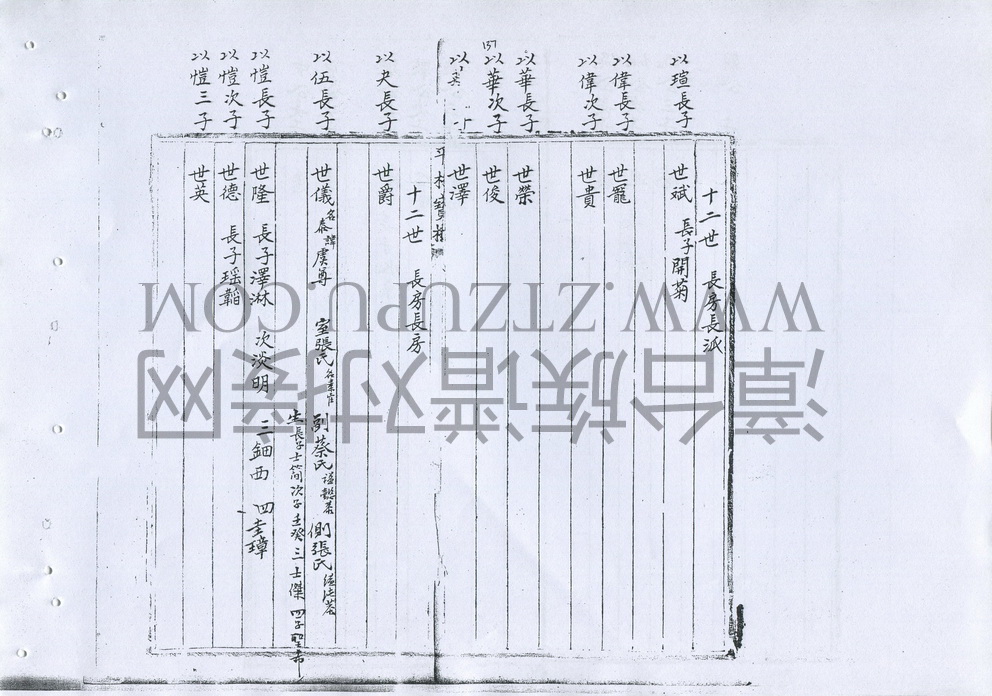 十二世 長房長派
以瑄長子 世斌 長子開菊
以偉長子 世罷
以偉次子 世貴
以華長子 世榮
157
以華次子 世俊
以 世澤
十二世 長房長房
以夬長子 世爵
以伍長子 世儀 名泰 諱虞尊 室張氏 副蔡氏 側張氏
生長子士简 次子士癸 三士傑 四子
以愷長子 世隆 長子澤淋 次淡明 三鈿西 四圭璋
以愷次子 世德 長子瑶韜
以愷三子 世英
WWW.ZTZUPU.COM
漳台族谱对接网